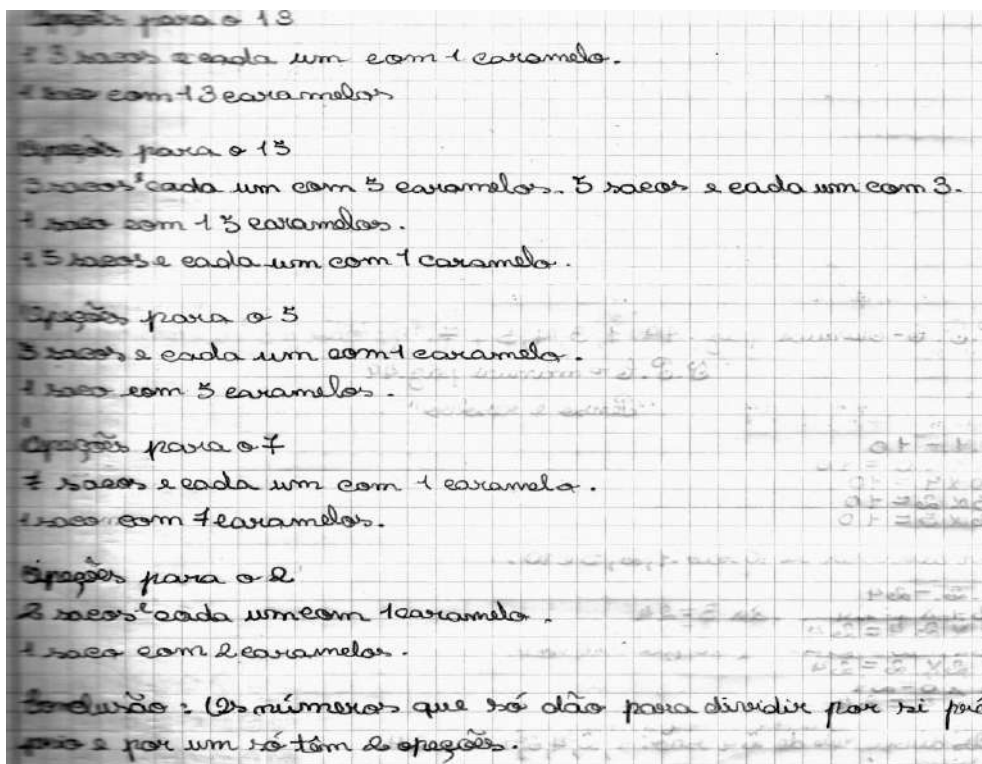 Opções para o 13
13 sacos e cada um com 1 caramelo.
1 saco com 13 caramelos
Opções para o 15
3 sacos e cada um com 5 caramelos. 5 sacos e cada um com 3.
1 saco com 15 caramelos.
15 sacos e cada um com 1 caramelo.
Opegões para o 5
5 sacos e cada um com 1 caramelo.
1 saco com 5 caramelos.
Opegões para o 7
7 sacos e cada um com 1 caramelo.
1 saco com 7 caramelos.
Opegões para o 2
2 sacos e cada um com 1 caramelo.
1 saco com 2 caramelos.
Conclusão: Os números que só dão para dividir por si pró
prio e por um só têm 2 opegões.